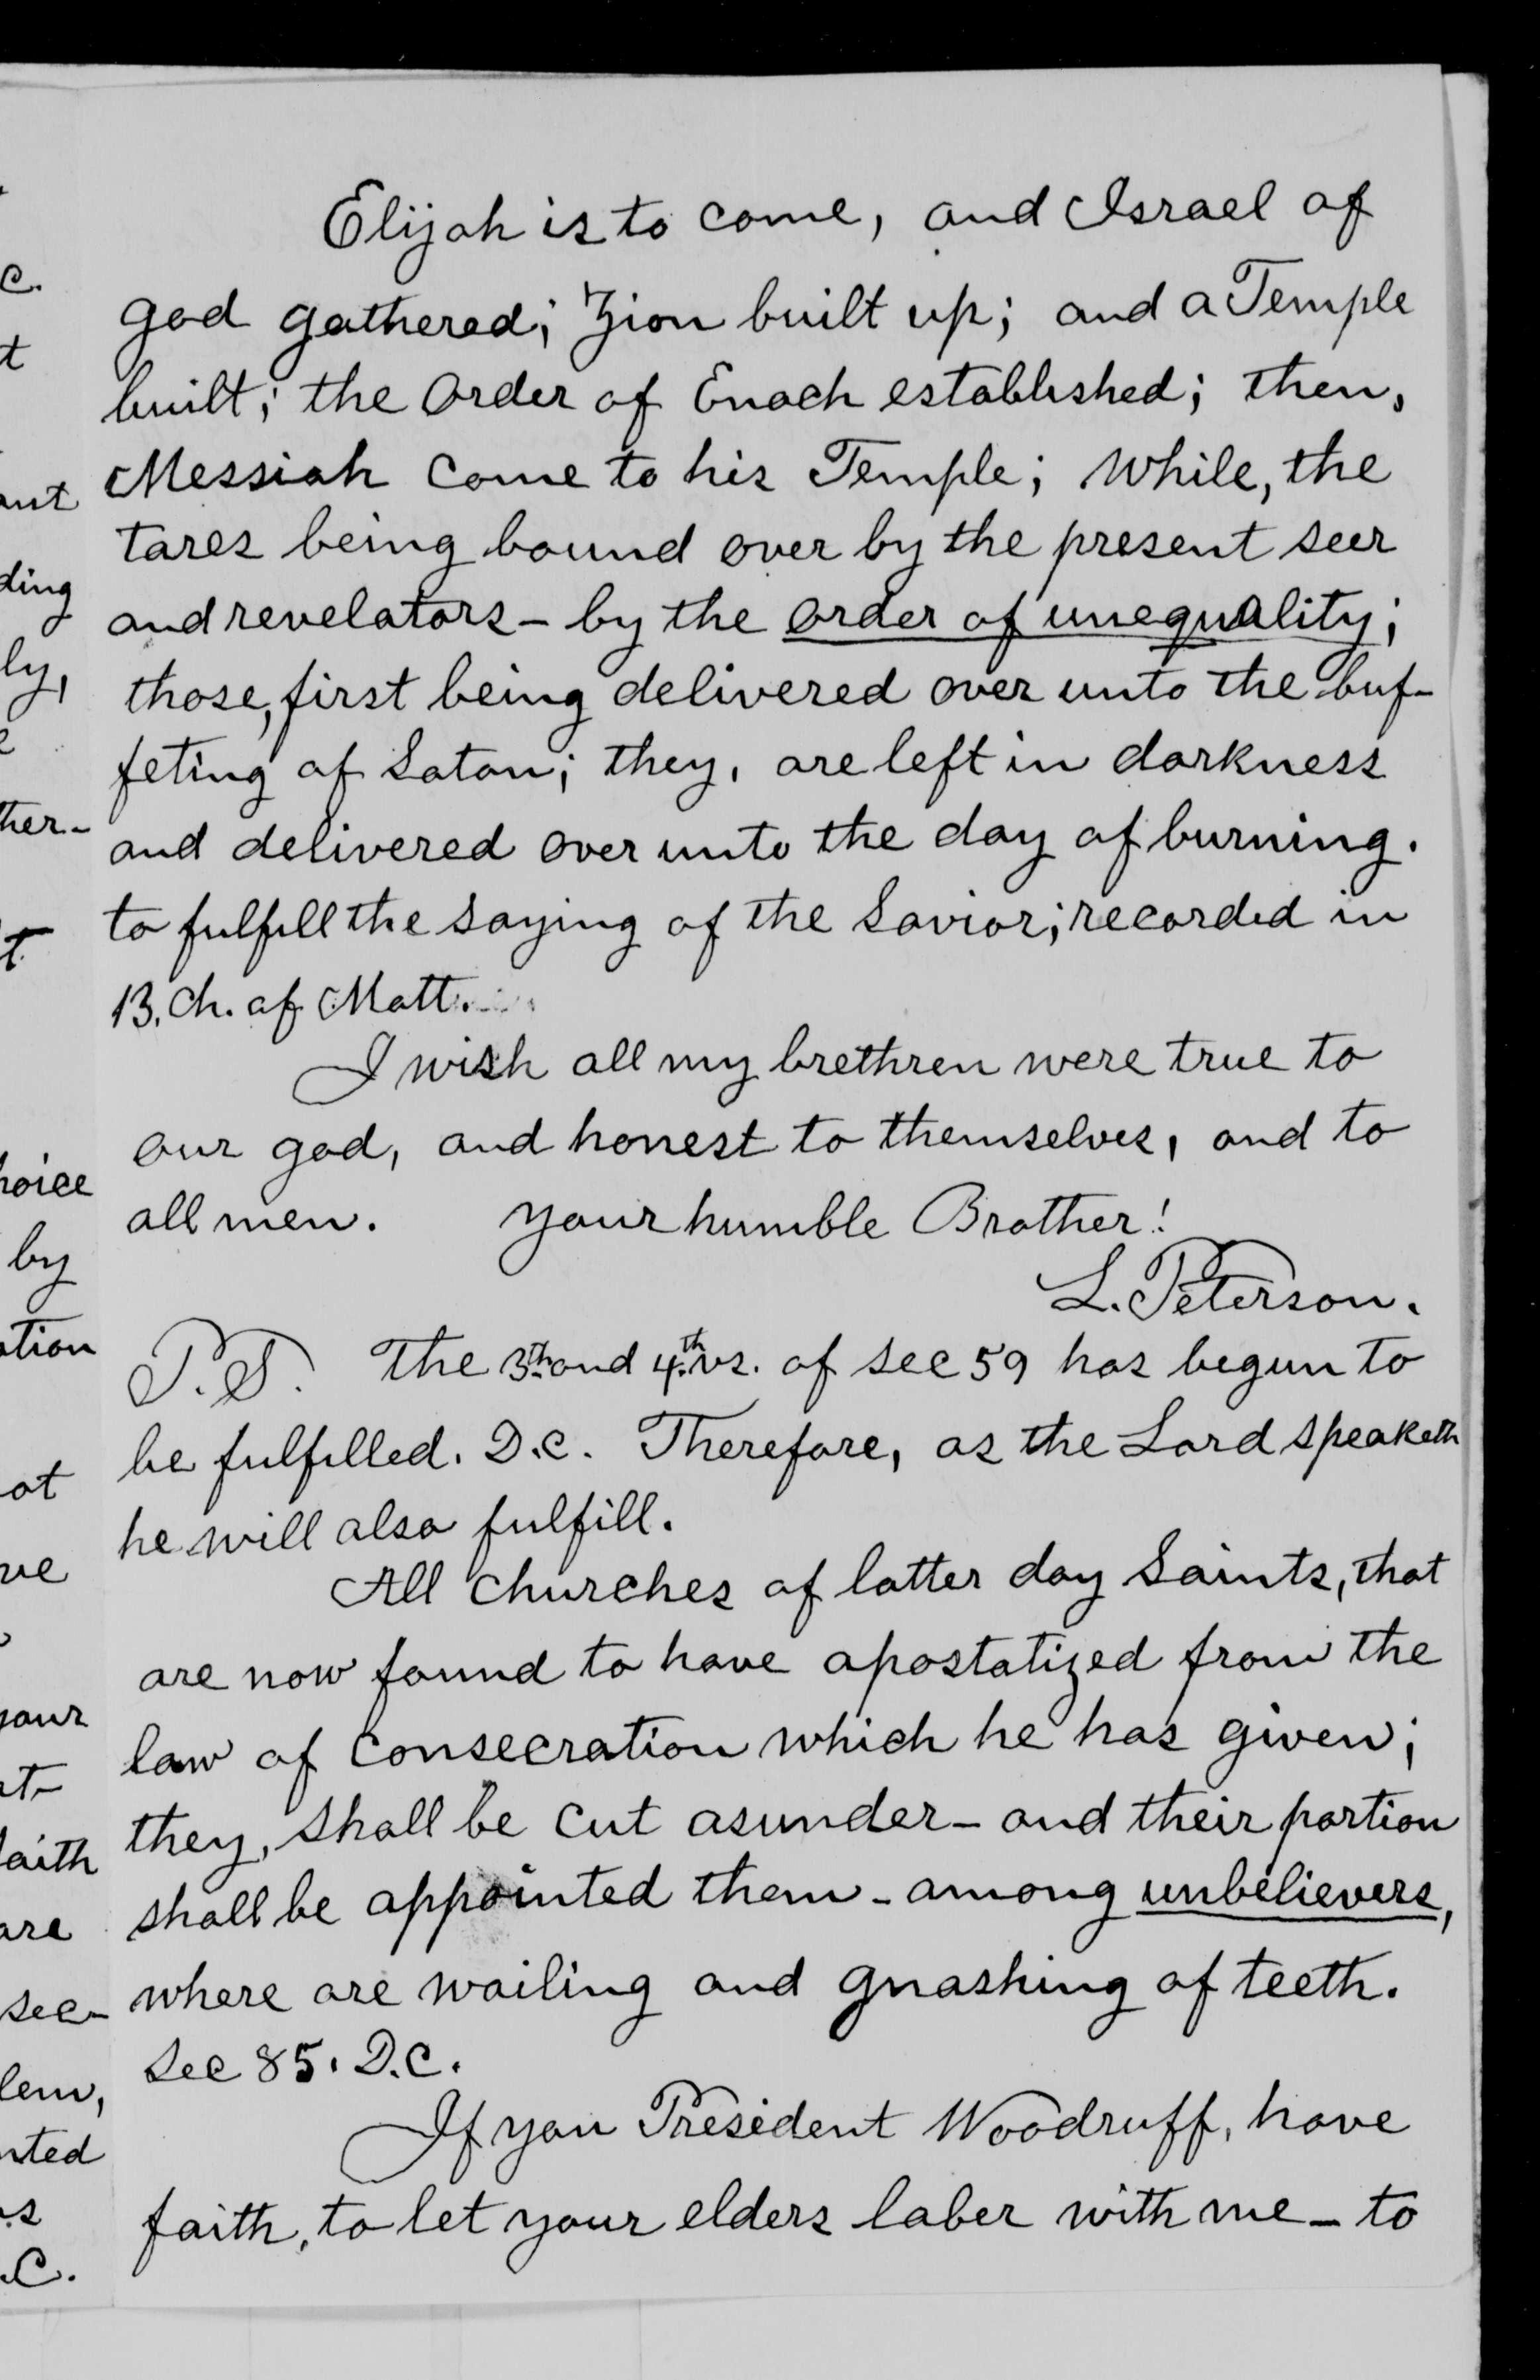 Elijah is to come, and Israel of
god gathered; Zion built up; and a Temple
built; the Order of Enoch established; then,
Messiah come to his Temple; while, the
tares being bound over by the present seer
and revelators – by the order of unequality;
those, first being delivered over unto the buf-
feting of Satan; they, are left in darkness
and delivered over unto the day of burning.
to fulfill the saying of the Savior; recorded in
13. ch. of Matt.
I wish all my brethren were true to
our god, and honest to themselves, and to
all men. your humble Brother!
L. Peterson.
P.S. The 3th and 4th vs. of sec 59 has begun to
be fulfilled. D.C. Therefore, as the Lord speaketh
he will also fulfill.
All churches of latter day Saints, that
are now found to have apostatized from the
law of consecration which he has given;
they, shall be cut asunder – and their portion
shall be appointed them – among unbelievers,
where are wailing and gnashing of teeth.
Sec 85. D.C.
If you President Woodruff, have
faith, to let your elders laber with me – to
c.
t
ding
ly,
ther-
t
by
ot
ve
faith
are
sec-
lem,
nted
.C.